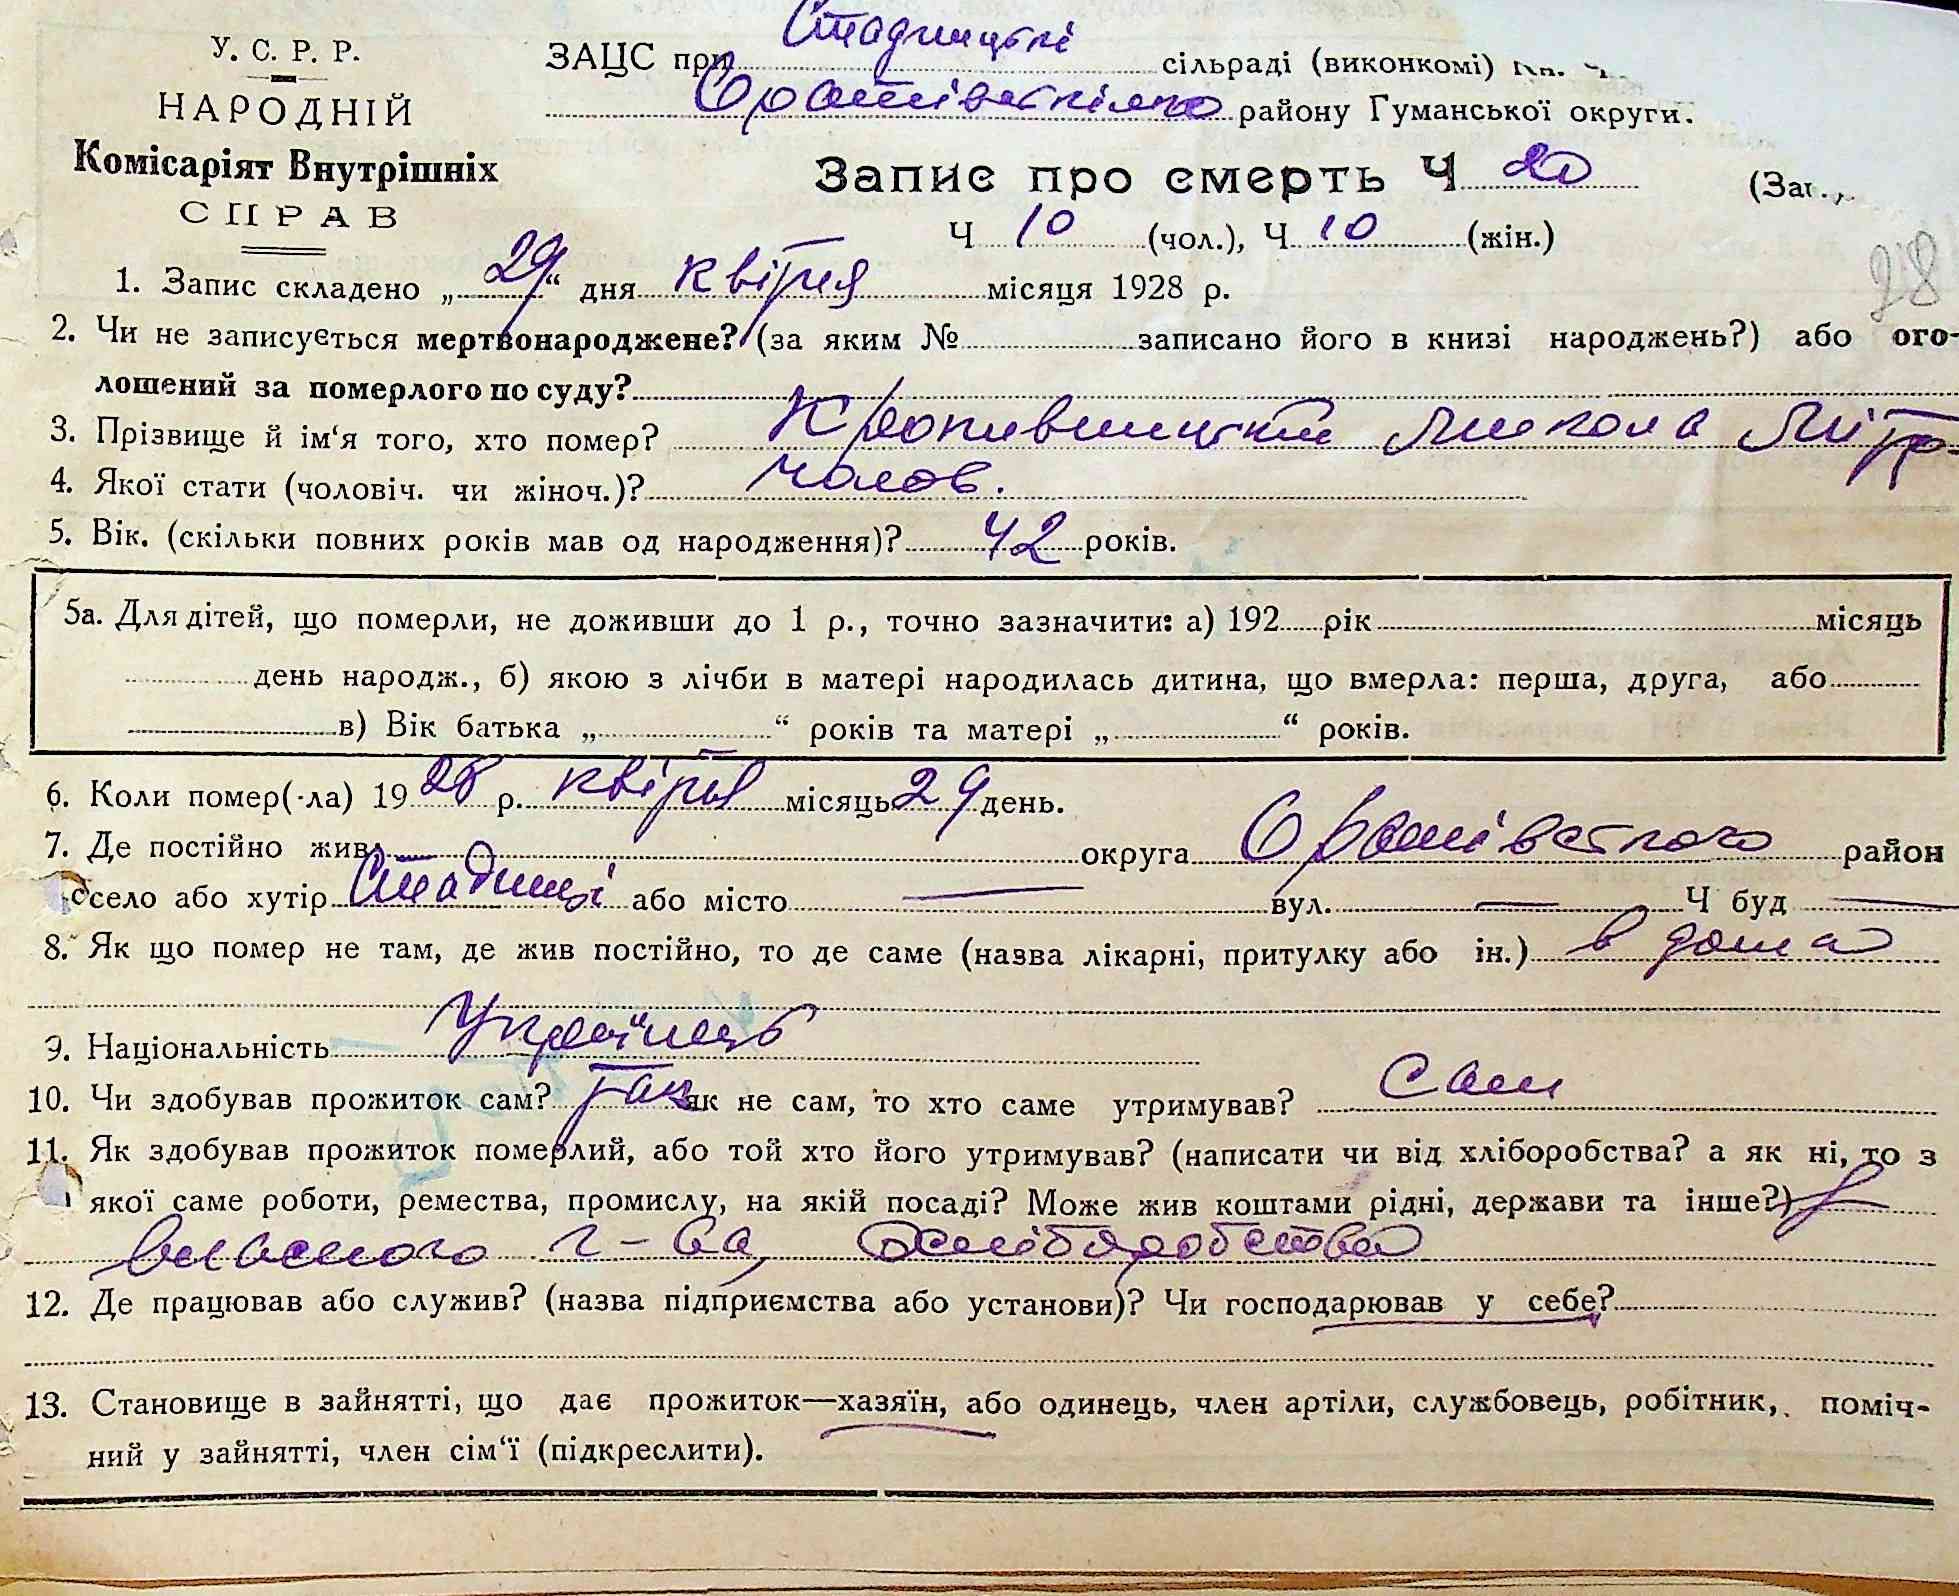 У. С. Р. Р.
НАРОДНІЙ
Комісаріят Внутрішніх
СПРАВ
ЗАЦС при Стадницькі сільраді (виконкомі)
Оратівському району Гуманської округи.
Запис про смерть Ч 20
Ч 10 (чол.), Ч 10 (жін.)
28
1. Запис складено „29“ дня квітня місяця 1928 р.
2. Чи не записується мертвонароджене? (за яким № записано його в книзі народжень?) або ого-
лошений за померлого по суду?
3. Прізвище й ім‘я того, хто помер? Кропивницкий Микола Мітр-
4. Якої стати (чоловіч. чи жіноч.)? чолов.
5. Вік. (скільки повних років мав од народження)? 42 років.
5а. Для дітей, що померли, не доживши до 1 р., точно зазначити: а) 192 рік місяць
день народж., б) якою з лічби в матері народилась дитина, що вмерла: перша, друга, або
в) Вік батька „ “ років та матері „ “ років.
6. Коли помер(-ла) 1928 р. квітня місяць 29 день.
7. Де постійно жив округа Оратівського район
село або хутір Стадниці або місто — вул. — Ч буд —
8. Як що помер не там, де жив постійно, то де саме (назва лікарні, притулку або ін.) в дома
9. Національність Украінець
10. Чи здобував прожиток сам? так як не сам, то хто саме утримував? Сам
11. Як здобував прожиток померлий, або той хто його утримував? (написати чи від хліборобства? а як ні, то з
якої саме роботи, ремества, промислу, на якій посаді? Може жив коштами рідні, держави та інше?) з
власного г-ва, хліборобства
12. Де працював або служив? (назва підприємства або установи)? Чи господарював у себе?
13. Становище в зайнятті, що дає прожиток—хазяїн, або одинець, член артіли, службовець, робітник, поміч-
ний у зайнятті, член сім‘ї (підкреслити).